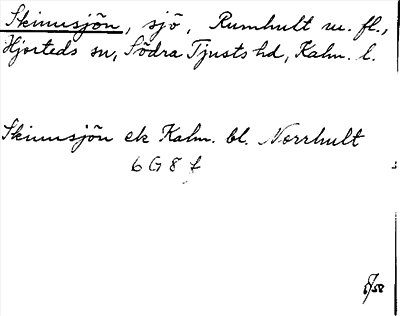 Skinnsjön, sjö, Rumhult m. fl.,
Hjorteds sn, Södra Tjusts hd, Kalm. l.
Skinnsjön ek Kalm. bl. Norrhult
6 G 8 f